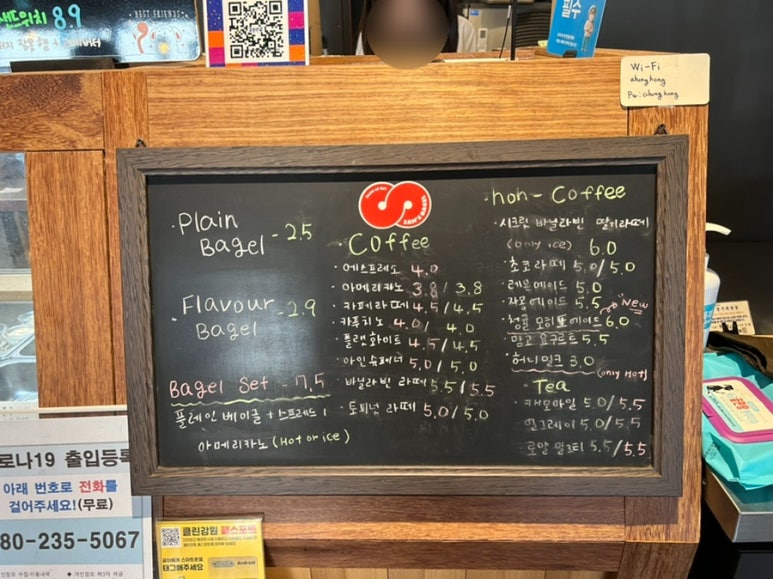 샌드위치 8.9
BEST FRIENDS
필수
Wi-Fi
ahunghong
Pw: ahunghong
· Plain
Bagel - 2.5
· Flavour
Bagel - 2.9
Bagel Set - 7.5
플레인 베이글 + 스프레드 1
아메리카노 (Hot or ice)
Coffee
· 에스프레소 4.0
· 아메리카노 3.8 / 3.8
· 카페라떼 4.5 / 4.5
· 카푸치노 4.0 / 4.0
· 플랫화이트 4.5 / 4.5
· 아인슈페너 5.0 / 5.0
· 바닐라빈 라떼 5.5 / 5.5
· 토피넛 라떼 5.0 / 5.0
non-Coffee
· 시크릿 바닐라빈 딸기라떼
(only ice) 6.0
· 초코라떼 5.0 / 5.0
· 레몬에이드 5.0
· 자몽에이드 5.5
· 청귤 모히또에이드 6.0 "NEW
· 망고 요구르트 5.5
· 허니밀크 3.0
(only Hot)
Tea
· 캐모마일 5.0 / 5.5
· 얼그레이 5.0 / 5.5
로얄 밀크티 5.5 / 5.5
로나19 출입등록
아래 번호로 전화를
걸어주세요!(무료)
80-235-5067
클린강원 패스포트
태그해주세요
Android